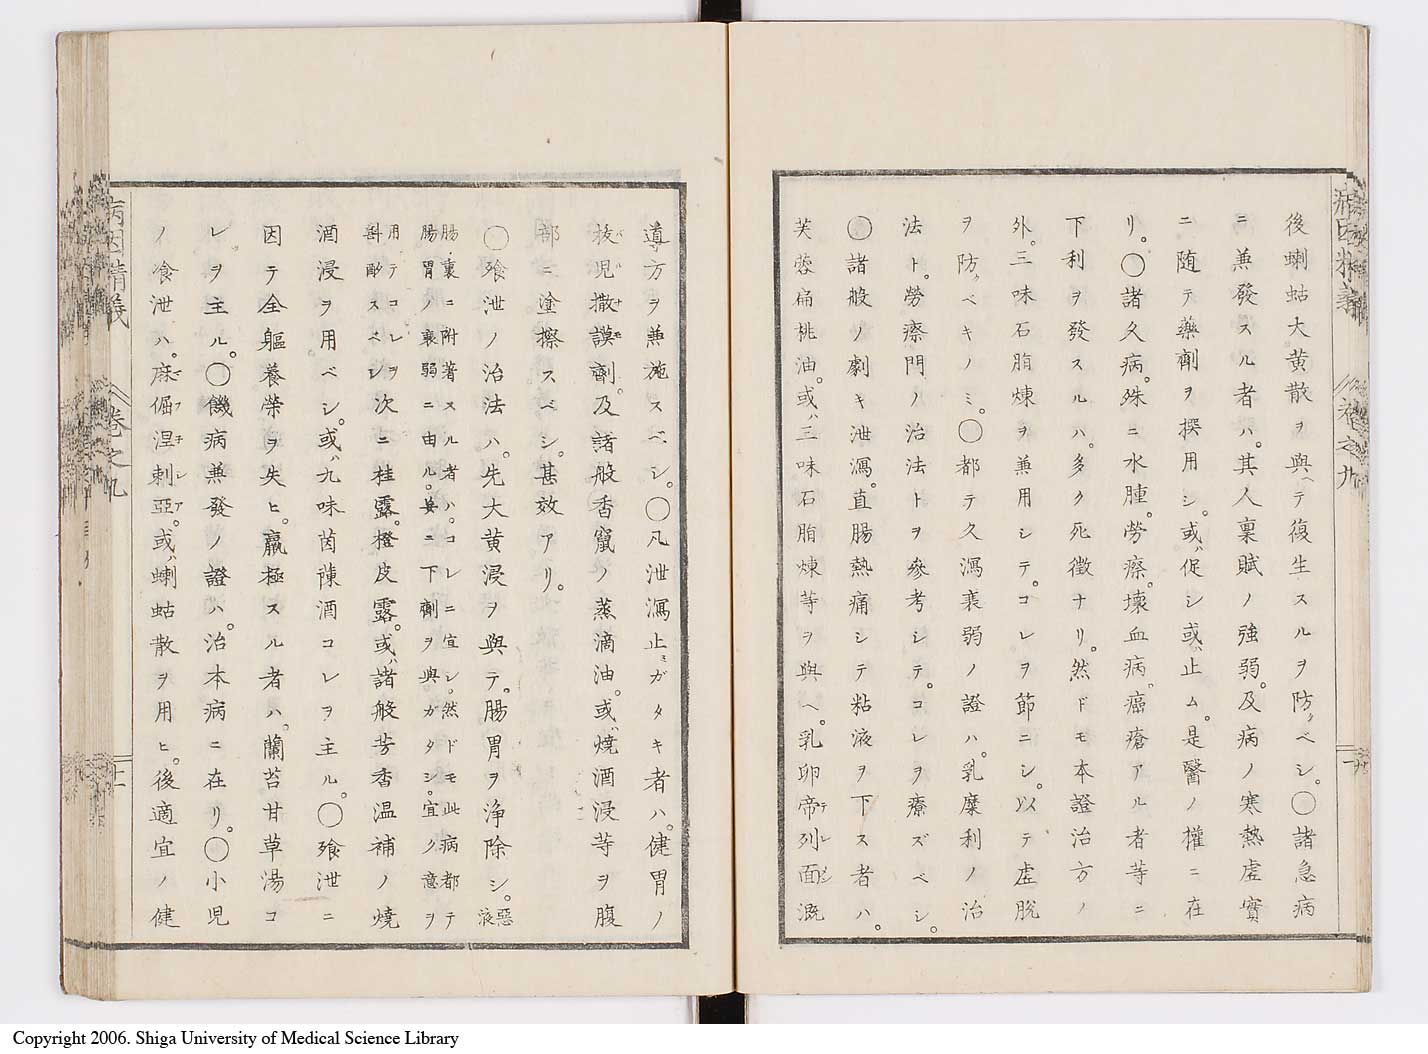 後蝲蛄大黄散ヲ與ヘテ復生スルヲ防グベシ。〇諸急病
ニ兼發スル者ハ。其人稟賦ノ強弱。及病ノ寒熱虚實
ニ随テ藥劑ヲ撰用シ。或ハ促シ或ハ止ム。是醫ノ權ニ在
リ。〇諸久病。殊ニ水腫。勞瘵。壞血病。癌瘡アル者等ニ
下利ヲ發スルハ。多ク死徴ナリ。然ドモ本證治方ノ
外。三味石脂煉ヲ兼用シテ。コレヲ節ニシ。以テ虚脱
ヲ防グベキノミ。〇都テ久瀉衰弱ノ證ハ。乳糜利ノ治
法ト。勞瘵門ノ治法トヲ參考シテ。コレヲ療ズベシ。
〇諸般ノ劇キ泄瀉。直腸熱痛シテ粘液ヲ下ス者ハ。
芙蓉扁桃油。或ハ三味石脂煉等ヲ與ヘ。乳卵帝列面溉
導方ヲ兼施スベシ。〇凡泄瀉止ミガタキ者ハ。健胃ノ
抜児撒謨劑。及諸般香竄ノ蒸滴油。或ハ燒酒浸等ヲ腹
部ニ塗擦スベシ。甚效アリ。
〇飱泄ノ治法ハ。先大黄浸ヲ與テ。腸胃ヲ浄除シ。惡液
腸裏ニ附著スル者ハ。コレニ宜シ。然ドモ此病都テ
腸胃ノ衰弱ニ由ル。妄ニ下劑ヲ與ガタシ。宜ク意ヲ
用テコレヲ
斟酌スベシ
次ニ桂露。橙皮露。或ハ諸般芳香温補ノ燒
酒浸ヲ用ベシ。或ハ九味茵蔯酒コレヲ主ル。〇飱泄ニ
因テ全軀養榮ヲ失ヒ。羸極スル者ハ。蘭苔甘草湯コ
レヲ主ル。〇饑病兼發ノ證ハ。治本病ニ在リ。〇小児
ノ飱泄ハ。麻倔涅剌亞。或ハ蝲蛄散ヲ用ヒ。後適宜ノ健
病因精義
卷之九
Copyright 2006. Shiga University of Medical Science Library